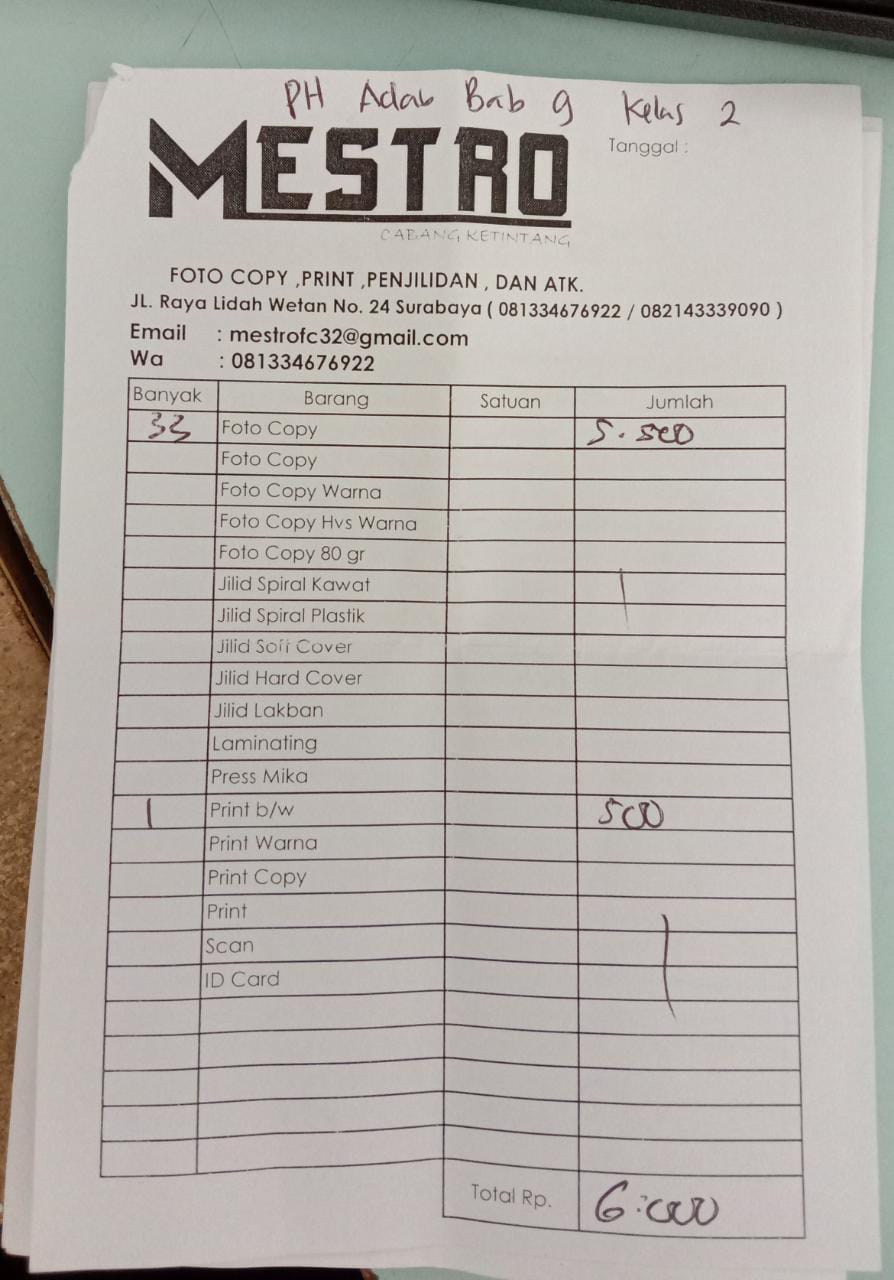 PH Adab Bab 9 Kelas 2
MESTRO
Tanggal :
CABANG KETINTANG
FOTO COPY ,PRINT ,PENJILIDAN , DAN ATK.
JL. Raya Lidah Wetan No. 24 Surabaya ( 081334676922 / 082143339090 )
Email : mestrofc32@gmail.com
Wa : 081334676922
Banyak Barang Satuan Jumlah
33 Foto Copy 5.500
Foto Copy
Foto Copy Warna
Foto Copy Hvs Warna
Foto Copy 80 gr
Jilid Spiral Kawat
Jilid Spiral Plastik
Jilid Soft Cover
Jilid Hard Cover
Jilid Lakban
Laminating
Press Mika
1 Print b/w 500
Print Warna
Print Copy
Print
Scan
ID Card
Total Rp. 6.000